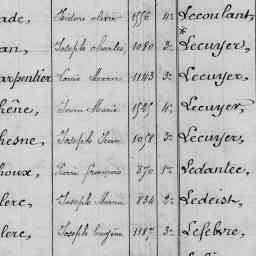 ade, Isidore Marie 1556 4e Lecoulant,
an, Joseph Charles 1080 3e Lecuyer,
arpentier Louis Marie 1143 3e Lecuyer,
hêne, Jean Marie 1545 4e Lecuyer,
hesne, Joseph Jean 1058 3e Lecuyer,
houx, Pierre François 870 Ledantec,
lerc, Joseph Marie 834 2e Ledeist,
lerc, Joseph Eugène 1187 3e Lefebvre,